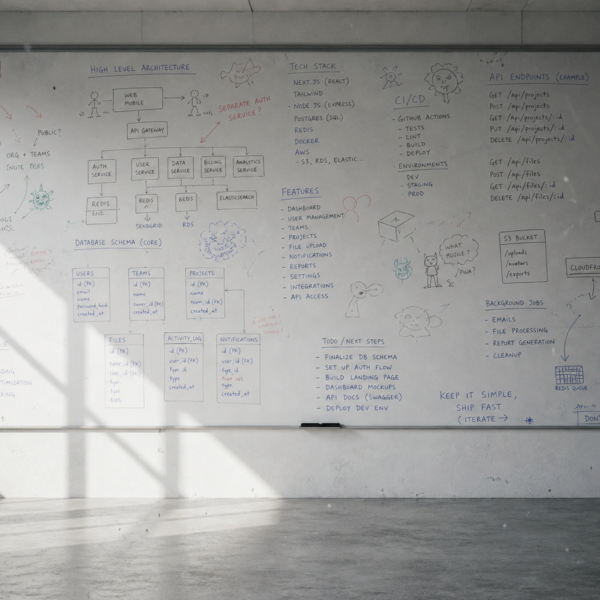 PUBLIC?
ORG + TEAMS
INVITE FILES
HIGH LEVEL ARCHITECTURE
WEB
MOBILE
SEPARATE AUTH
SERVICE?
API GATEWAY
AUTH
SERVICE
USER
SERVICE
DATA
SERVICE
BILLING
SERVICE
ANALYTICS
SERVICE
REDIS
REDIS
REDIS
ELASTICSEARCH
SENDGRID
RDS
DATABASE SCHEMA (CORE)
USERS
id (PK)
email
name
password_hash
created_at
TEAMS
id (PK)
name
owner_id (PK)
created_at
PROJECTS
id (PK)
name
team_id (PK)
created_at
FILES
id (PK)
type
ACTIVITY_LOG
id (PK)
user_id (PK)
type_id
type
created_at
NOTIFICATIONS
id (PK)
user_id (PK)
type_id
type
created_at
TECH STACK
- NEXT.JS (REACT)
TAILWIND
- NODE.JS (EXPRESS)
POSTGRES (SQL)
REDIS
DOCKER
AWS
- S3, RDS, ELASTIC...
FEATURES
- DASHBOARD
- USER MANAGEMENT
- TEAMS
- PROJECTS
- FILE UPLOAD
- NOTIFICATIONS
- REPORTS
- SETTINGS
- INTEGRATIONS
- API ACCESS
CI/CD
- GITHUB ACTIONS
- TESTS
- LINT
- BUILD
- DEPLOY
ENVIRONMENTS
- DEV
- STAGING
- PROD
WHAT
MOBILE?
/ PWA?
TODO / NEXT STEPS
- FINALIZE DB SCHEMA
- SET UP AUTH FLOW
- BUILD LANDING PAGE
- DASHBOARD MOCKUPS
- API DOCS (SWAGGER)
- DEPLOY DEV ENV
API ENDPOINTS (EXAMPLE)
GET /api/projects
POST /api/projects
GET /api/projects/:id
PUT /api/projects/:id
DELETE /api/projects/:id
GET /api/files
POST /api/files
GET /api/files/:id
DELETE /api/files/:id
S3 BUCKET
/uploads
/avatars
/exports
CLOUDFR
BACKGROUND JOBS
- EMAILS
- FILE PROCESSING
- REPORT GENERATION
- CLEANUP
REDIS QUEUE
KEEP IT SIMPLE,
SHIP FAST
(ITERATE →
DON'T